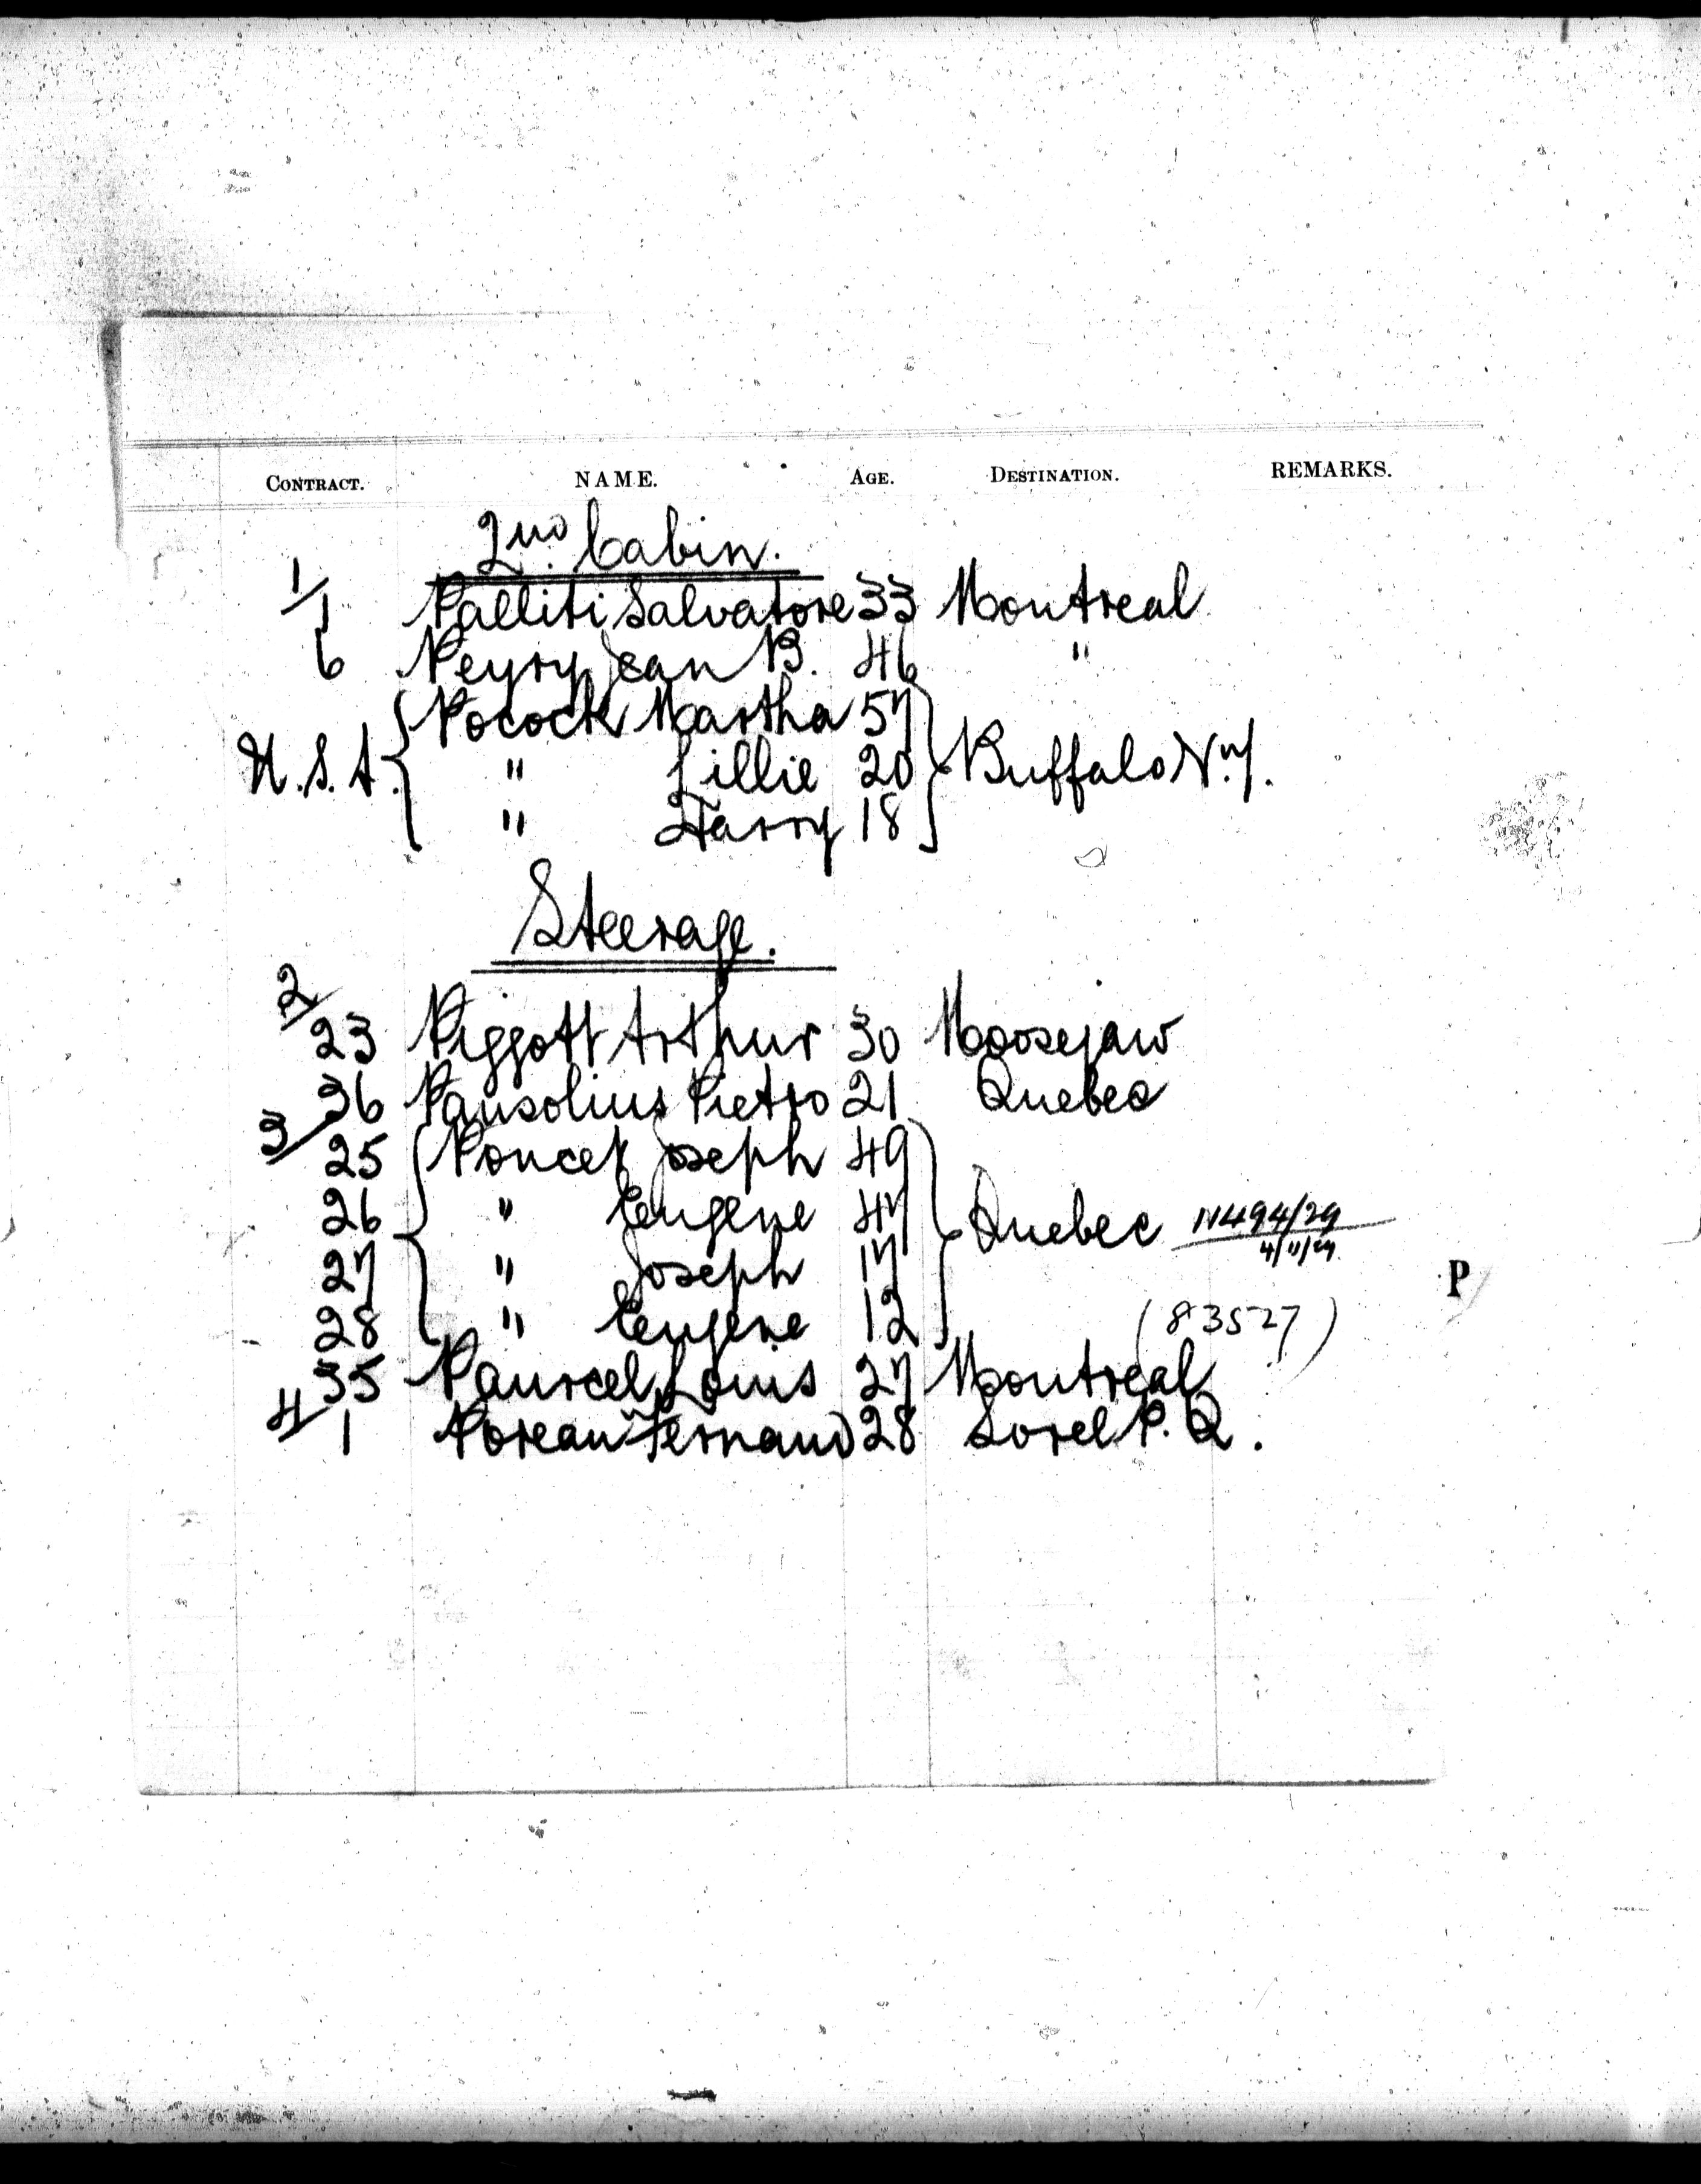 CONTRACT. NAME. AGE. DESTINATION. REMARKS.
2nd. Cabin.
1/1 Palliti Salvatore 33 Montreal
6 Peyry Jean B. 46 "
Pocock Martha 57
U.S.A. " Lillie 20 Buffalo N.Y.
" Harry 18
Steerage.
2/23 Piggott Arthur 30 Moosejaw
36 Pausolius Pietro 21 Quebec
3/25 Poncet Joseph 49
26 " Eugene 47 Quebec 11494/29
4/11/29.
27 " Joseph 17
P
28 " Eugene 12 (83527)
35 Paurcel Louis 27 Montreal
4/1 Poreau Fernand 28 Sorel P.Q.